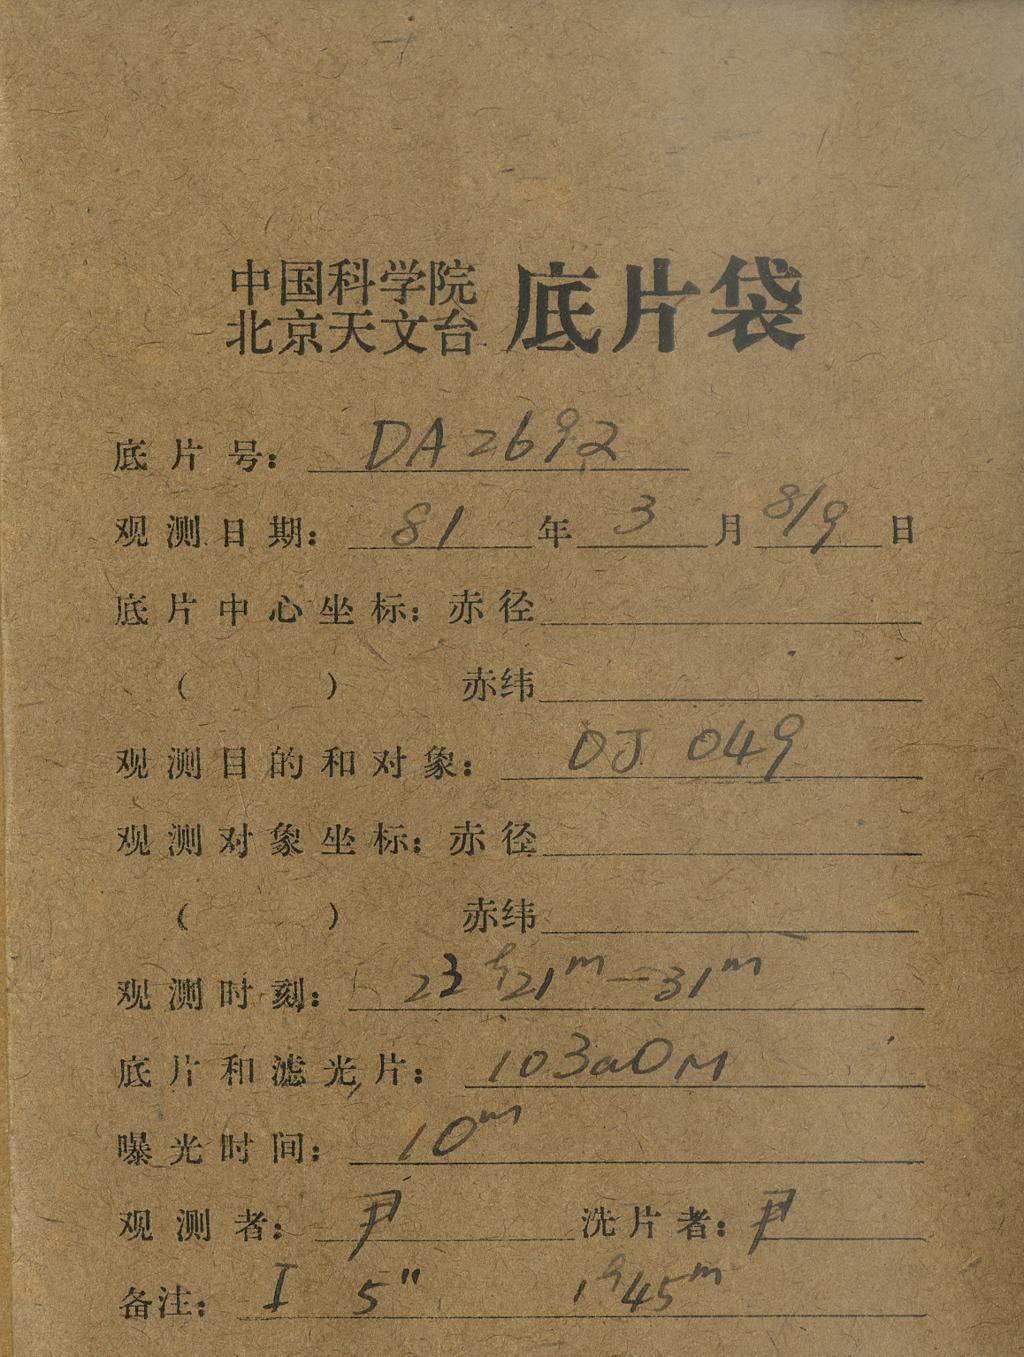 中国科学院
北京天文台 底片袋
底片号: DA2692
观测日期: 81 年 3 月 8/9 日
底片中心坐标: 赤径
( ) 赤纬
观测目的和对象: OJ 049
观测对象坐标: 赤径
( ) 赤纬
观测时刻: 23ʰ21ᵐ—31ᵐ
底片和滤光片: 103aO M
曝光时间: 10ᵐ
观测者: 尹 洗片者: 尹
备注: I 5" 1ʰ45ᵐ